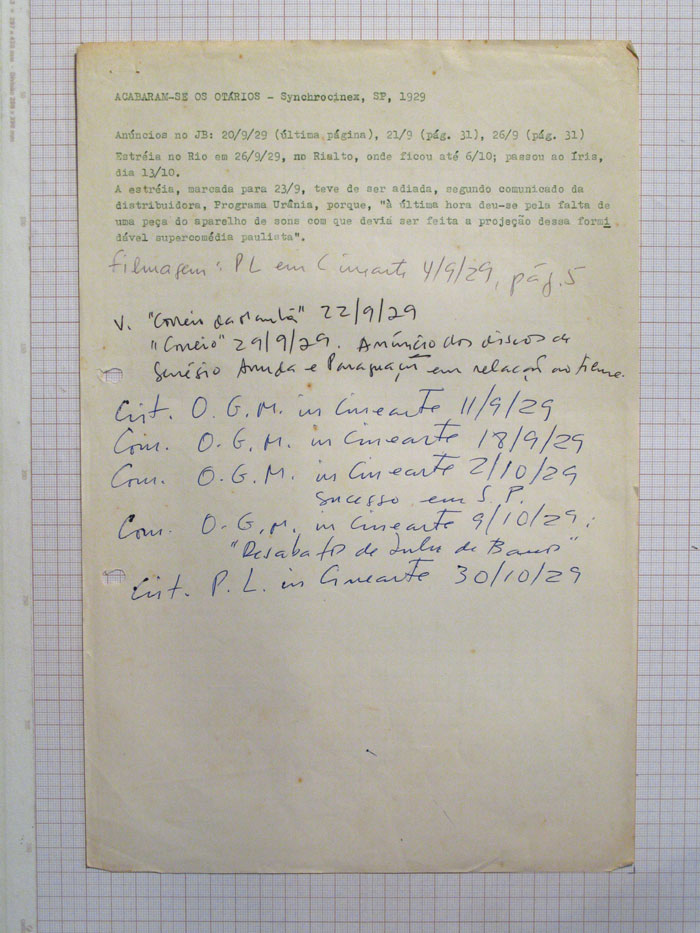 ACABARAM-SE OS OTÁRIOS - Synchrocinex, SP, 1929
Anúncios no JB: 20/9/29 (última página), 21/9 (pág. 31), 26/9 (pág. 31)
Estréia no Rio em 26/9/29, no Rialto, onde ficou até 6/10; passou ao Íris,
dia 13/10.
A estréia, marcada para 23/9, teve de ser adiada, segundo comunicado da
distribuidora, Programa Urânia, porque, "à última hora deu-se pela falta de
uma peça do aparelho de sons com que devia ser feita a projeção dessa formi
dável supercomédia paulista".
Filmagem: PL em Cinearte 4/9/29, pág. 5
V. "Correio da Manhã" 22/9/29
"Correio" 29/9/29. Anúncio dos discos de
Genésio Arruda e Paraguaçu em relação ao filme.
Cit. O. G. M. in Cinearte 11/9/29
Com. O. G. M. in Cinearte 18/9/29
Com. O. G. M. in Cinearte 2/10/29
Sucesso em S. P.
Com. O. G. M. in Cinearte 9/10/29:
"Desabafos de Lulu de Barros"
Cit. P. L. in Cinearte 30/10/29